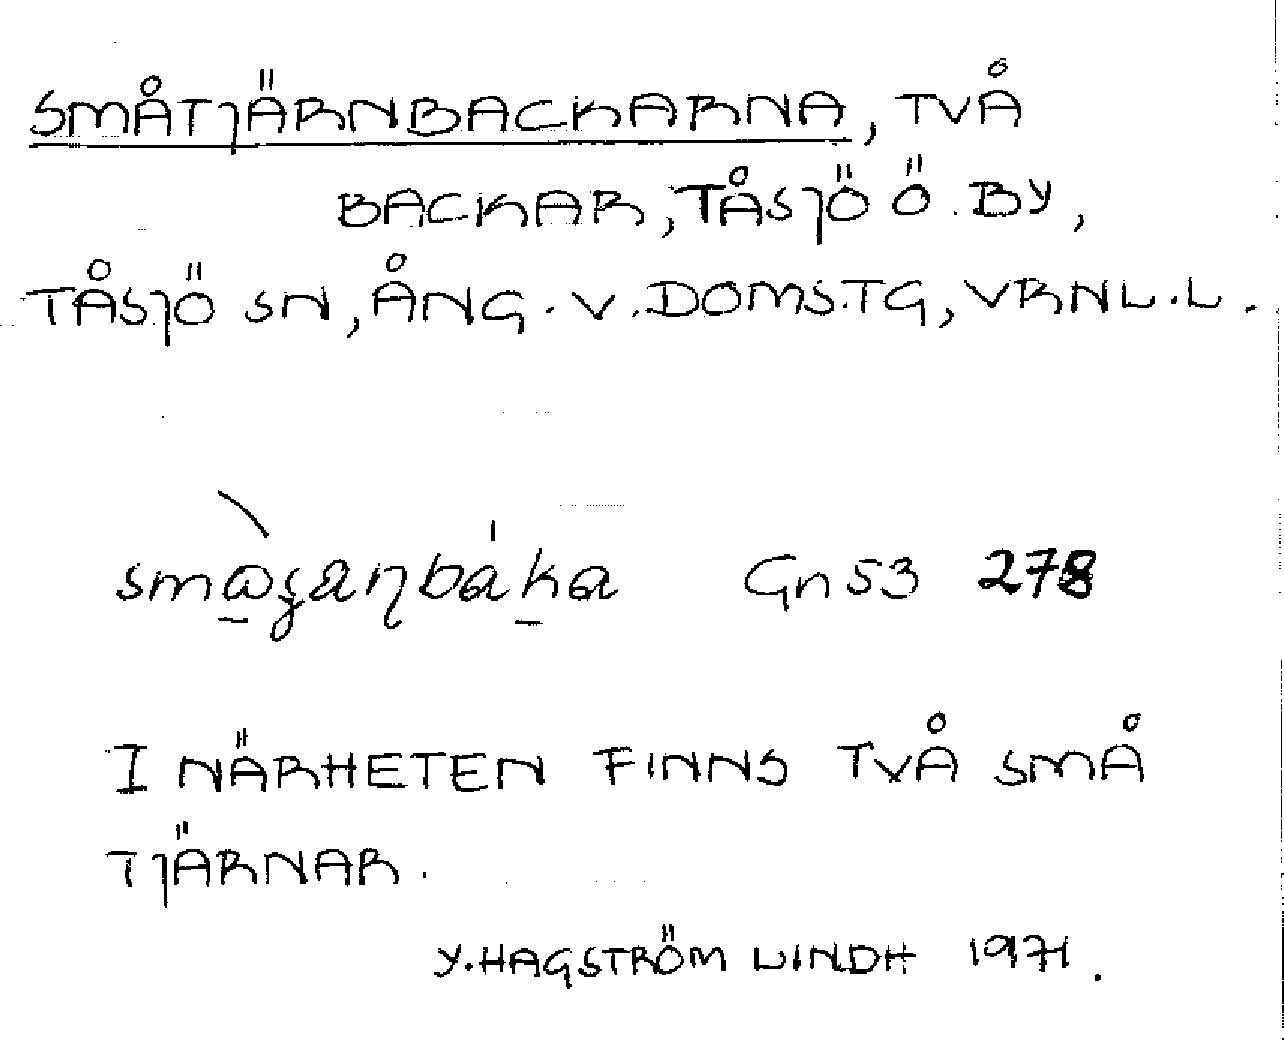 SMÅTJÄRNBACKARNA, TVÅ
BACKAR, TÅSJÖ Ö. BY,
TÅSJÖ SN, ÅNG. V. DOMS.TG, VRNL.L.
Gn 53 278
I NÄRHETEN FINNS TVÅ SMÅ
TJÄRNAR.
Y. HAGSTRÖM LINDH 1971.